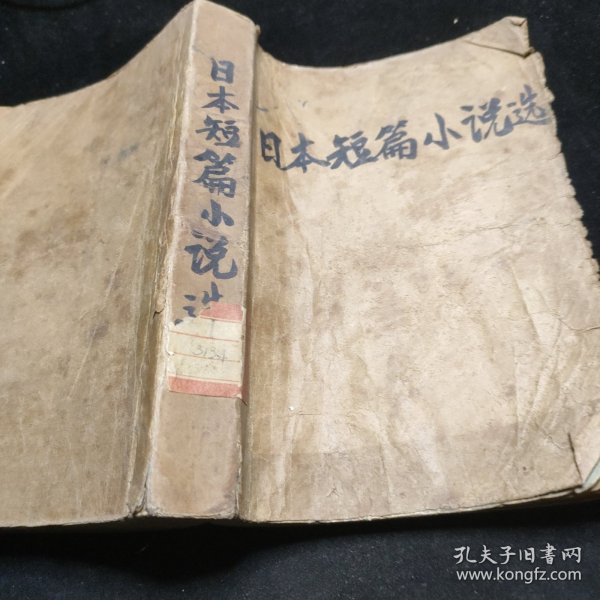 日本短篇小说选
日本短篇小说选
孔夫子旧书网
www.kongfz.com